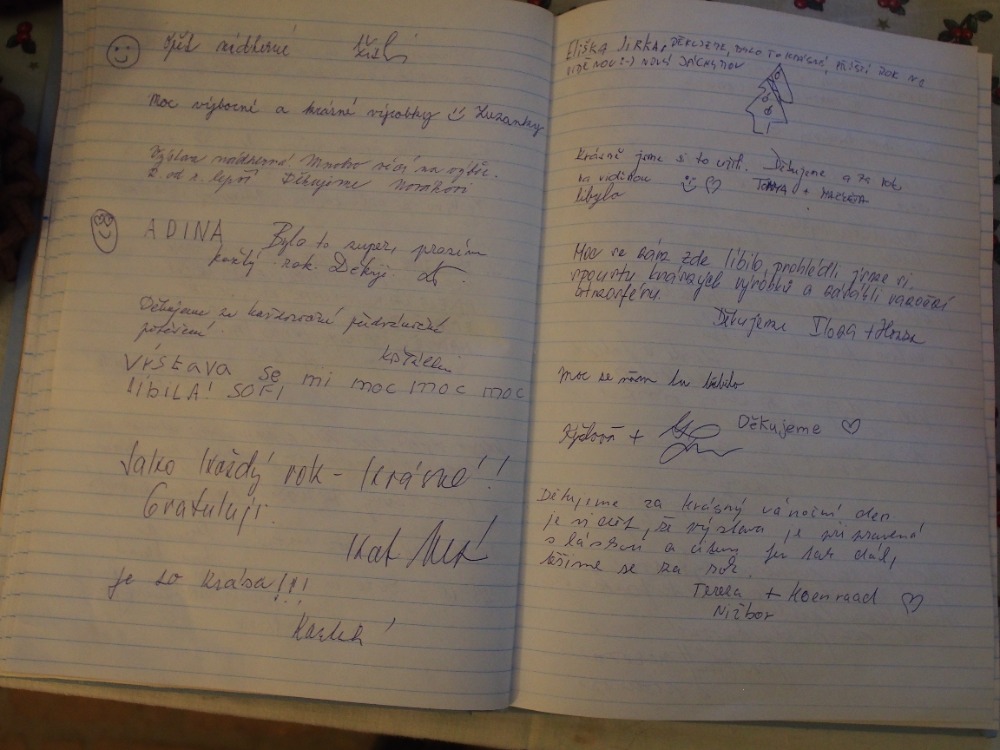 Opět nádherné
Moc výborné a krásné výrobky Zuzanky
Výstava nádherná Mnoho věcí na výběr.
R. od r. lepší Děkujeme Novákovi
ADINA Bylo to super, prosím
každý rok. Děkuji.
Děkujeme za každoroční předvánoční
potěšení.
Výstava se mi moc moc moc
líbila! SOFI
Jako každý rok - krásné!!
Gratuluji.
Kat
je to krása!!!
Eliška Jirka, děkujeme, bylo to krásné, příští rok na
viděnou :-) Nový Jáchymov
Krásně jsme si to užili. Děkujeme a za rok
na viděnou
Moc se nám zde líbilo, prohlédli jsme si
spoustu krásných výrobků a nasáli vánoční
atmosféru.
Děkujeme Ilona + Honza
Moc se nám tu líbilo
Děkujeme
Děkujeme za krásný vánoční den
je vidět, že výstava je připravená
s láskou a citem, jen tak dál,
těšíme se za rok.
Tereza + Koenraad
Nižbor